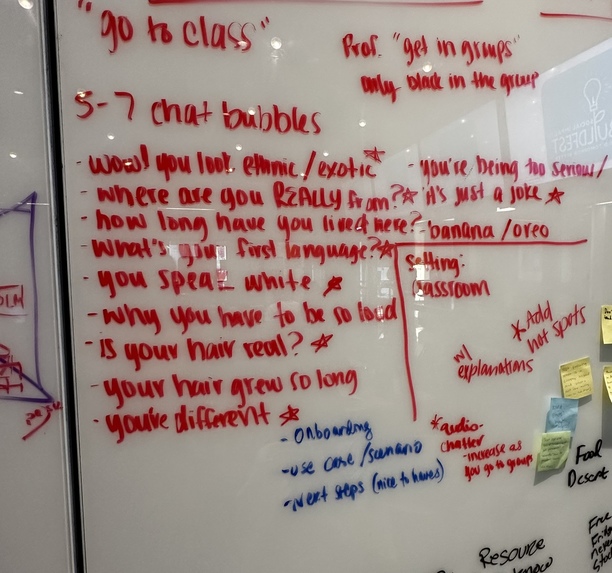 "go to class"
Prof. "get in groups"
only black in the group
5-7 chat bubbles
- wow! you look ethnic/exotic ☆
- where are you REALLY from? ☆
- how long have you lived here?
- What's your first language? ☆
- you speak white ☆
- why you have to be so loud
- Is your hair real? ☆
- your hair grew so long
- you're different ☆
- you're being too serious/
it's just a joke ☆
- banana/oreo
Setting:
Classroom
* Add
hot spots
w/
explanations
* audio-
chatter
- increase as
you go to groups
- Onboarding
- use case/scenario
- Next steps (nice to haves)
Food
Desert
Resource
Free